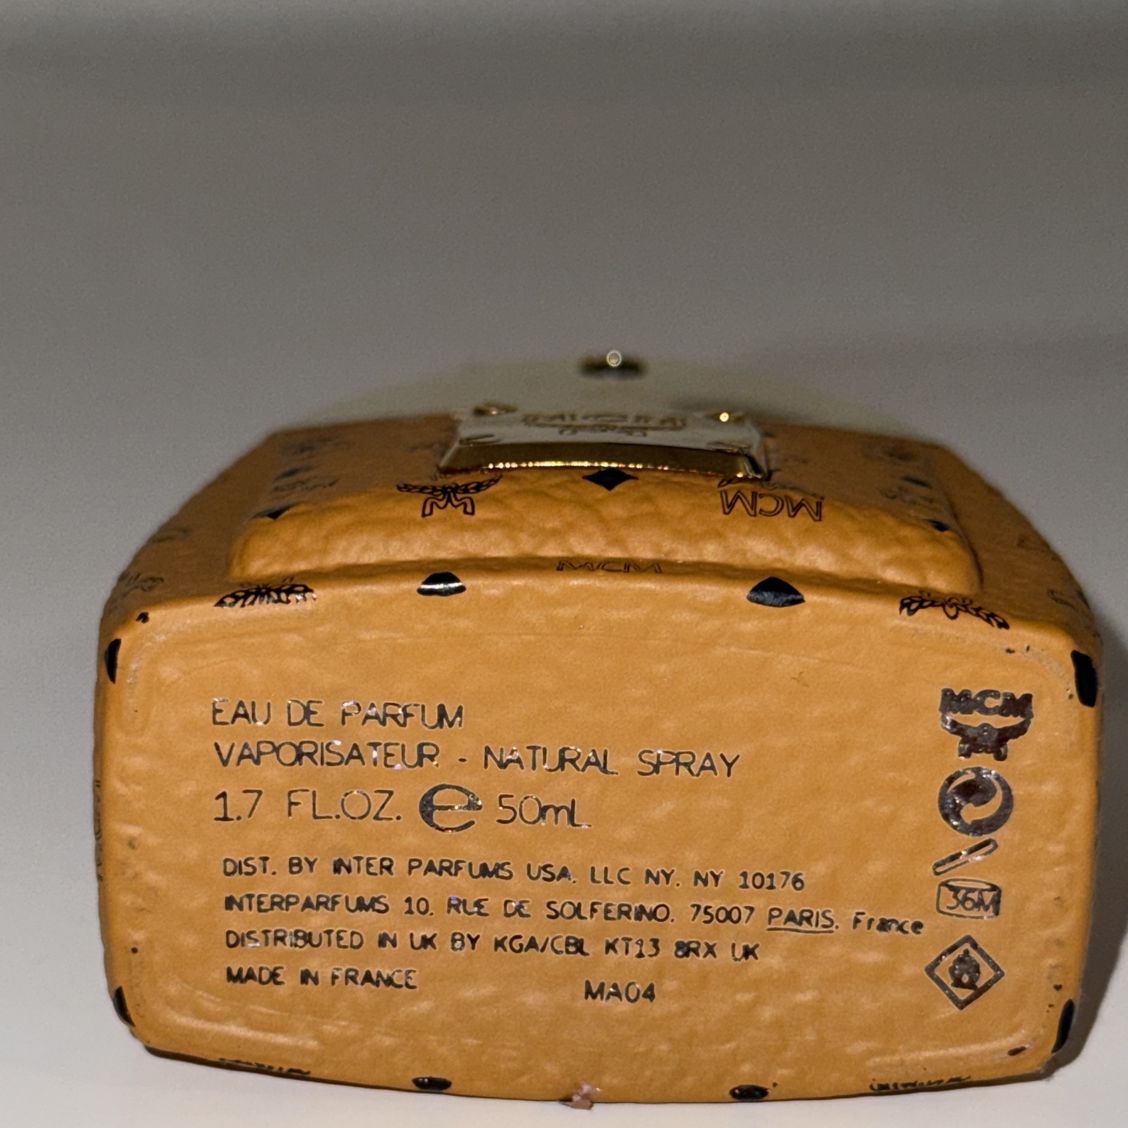 MCM
MCM
EAU DE PARFUM
VAPORISATEUR - NATURAL SPRAY
1.7 FL.OZ. e 50mL
DIST. BY INTER PARFUMS USA, LLC NY, NY 10176
INTERPARFUMS 10, RUE DE SOLFERINO, 75007 PARIS, France
DISTRIBUTED IN UK BY KGA/CBL KT13 8RX UK
MADE IN FRANCE MA04
MCM
36M